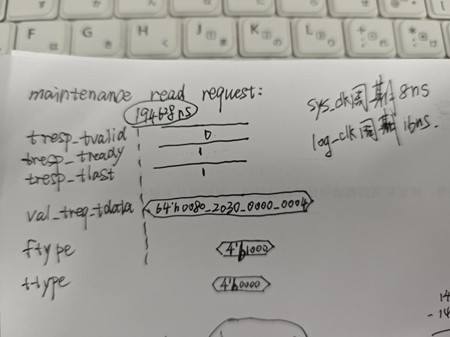 maintenance read request:
194628ns
sys_clk周期 8ns
log_clk周期 16ns.
tresp_tvalid 0
tresp_tready 1
tresp_tlast 1
val_treq_tdata 64'h0080_2030_0000_0004
ftype 4'b1000
ttype 4'b0000